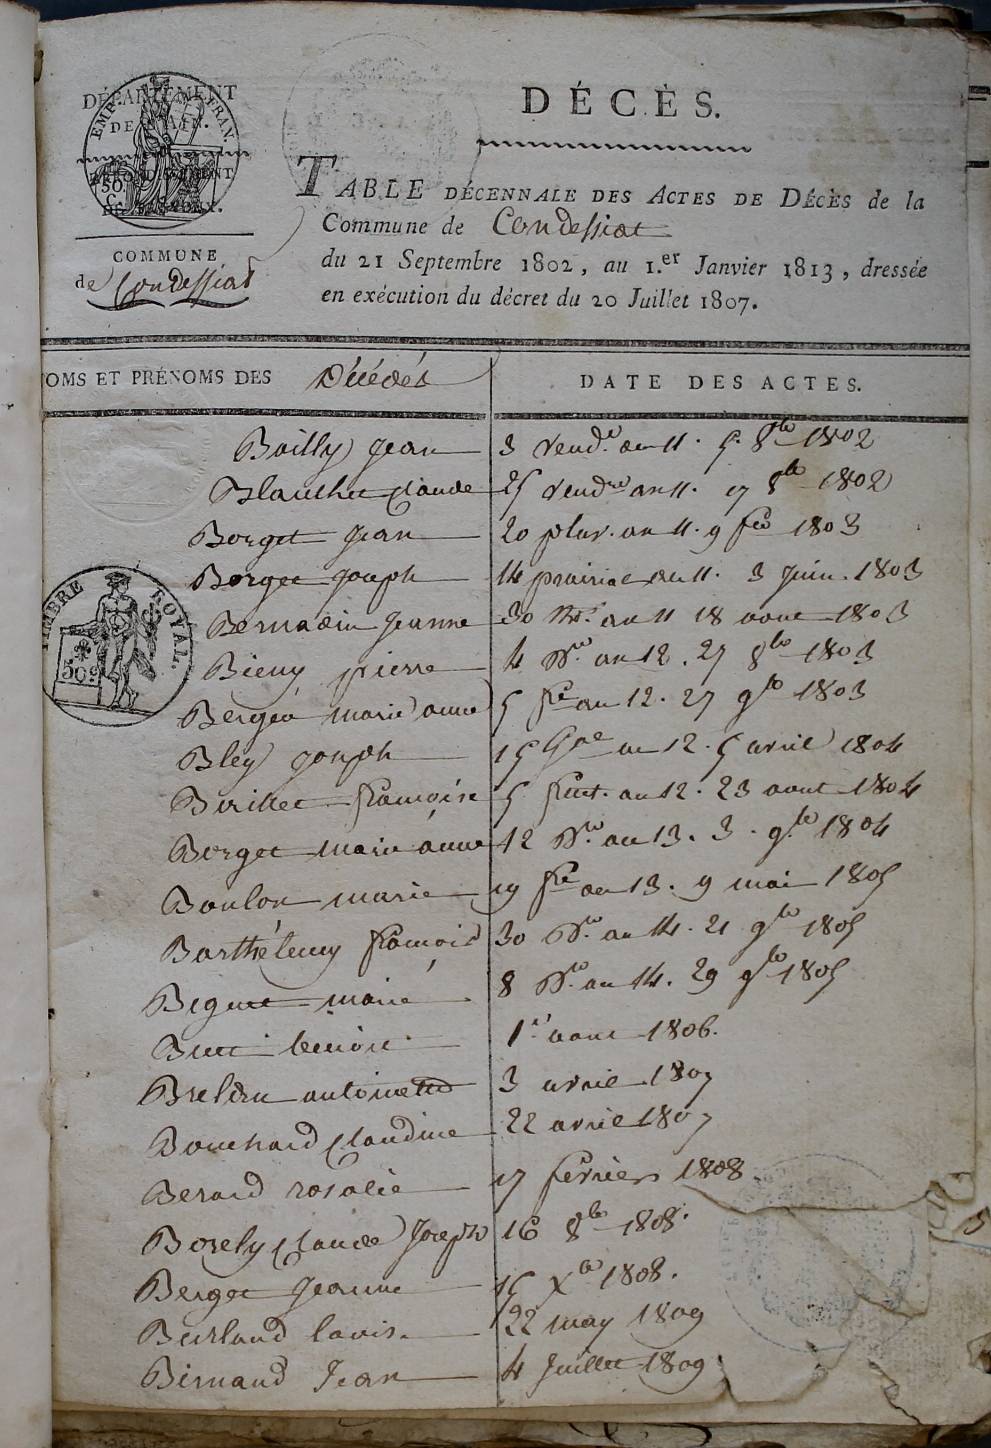 DÉPARTEMENT
DE L'AIN.
EMP. FRAN.
50.
C.
ARRONDISSEMENT
COMMUNE
de Condessiat
DÉCÈS.
TABLE DÉCENNALE DES ACTES DE DÉCÈS de la
Commune de Condessiat
du 21 Septembre 1802, au 1.er Janvier 1813, dressée
en exécution du décret du 20 Juillet 1807.
OMS ET PRÉNOMS DES Décédés
DATE DES ACTES.
TIMBRE ROYAL.
50c
Bailly Jean 3 vend.re an 11. 5. 8bre 1802
Blanchet Claude 25 vend.re an 11. 17 8bre 1802
Borget Jean 20 pluv. an 11. 9 feer 1803
Borget Joseph 14 prairial an 11. 3 Juin. 1803
Bernadin Jeanne 30 an 11 18 aout 1803
pierre 4 Bre an 12. 27 8bre 1803
marie anne 5 fre an 12. 27 9bre 1803
Bley Joseph 15 Gal an 12. 5 avril 1804
françoise 5 fruct. an 12. 23 aout 1804
Borget marie anne 12 Bre an 13. 3. 9bre 1804
Boulon marie 19 an 13. 9 mai 1805
Barthélemy françois 30 Bre an 14. 21 9bre 1805
marie 8 Bre an 14. 29 9bre 1805
1er aout 1806.
antoinette 3 avril 1807
Bouchard Claudine 22 avril 1807
Berard rosalie 17 fevrier 1808
Borely Claude Joseph 16 8bre 1808.
Berget Jeanne Xbre 1808.
Burland Louis 22 may 1809
Bernaud Jean 4 Juillet 1809